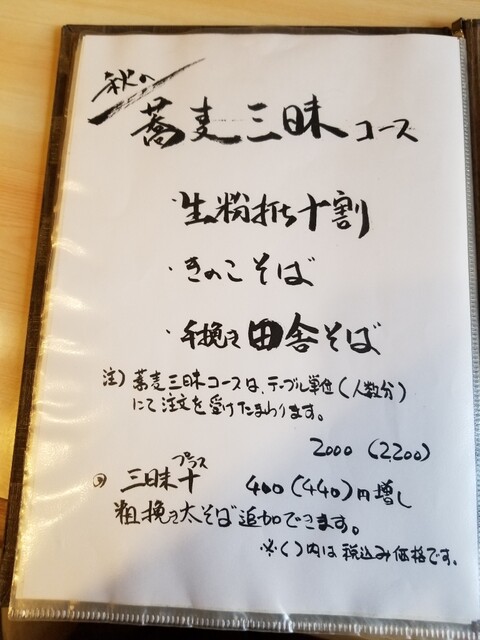 秋の
蕎麦三昧コース
・生粉打ち十割
・きのこそば
・手挽き田舎そば
注)蕎麦三昧コースは、テーブル単位(人数分)
にて注文を受けたまわります。
2000 (2,200)
プラス
三昧十 400(440)円増し
粗挽き太そば追加できます。
※( )内は税込み価格です。